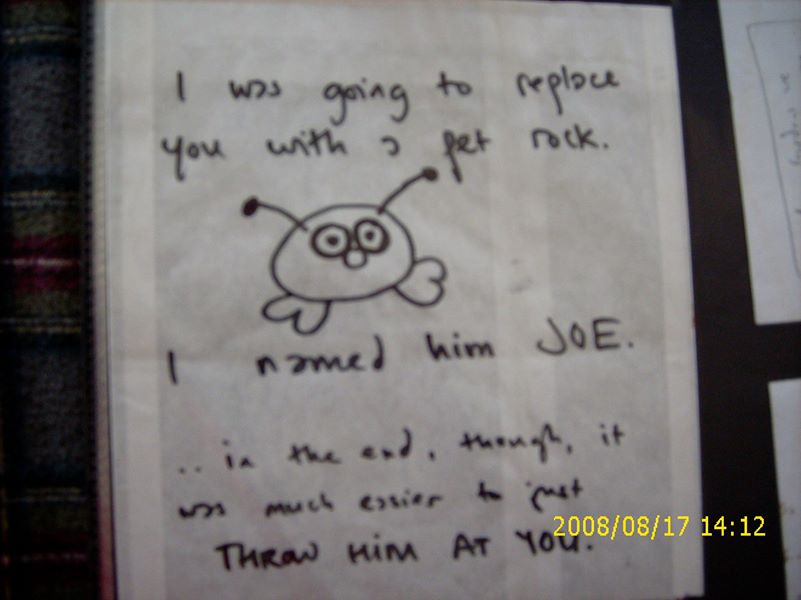 I was going to replace
you with a pet rock.
I named him JOE.
.. in the end, though, it
was much easier to just
THROW HIM AT YOU.
2008/08/17 14:12